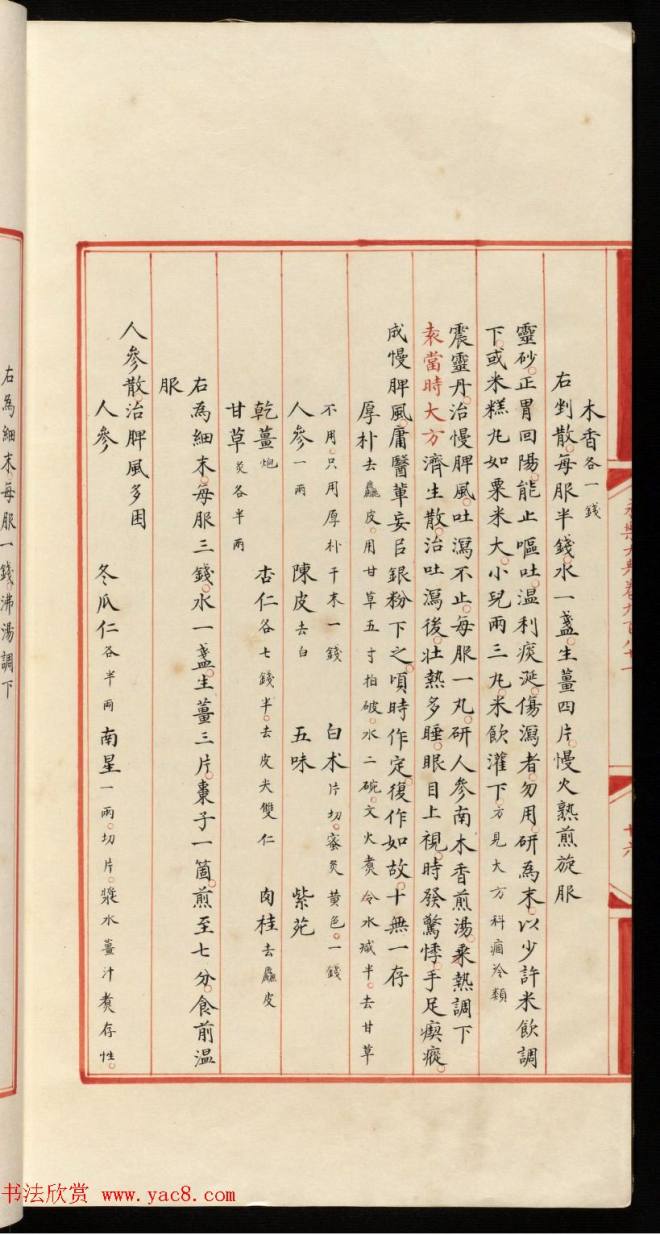 木香各一錢
右剉散。每服半錢。水一盞。生薑四片。慢火熟煎旋服
靈砂。正胃回陽。能止嘔吐。温利痰涎。傷瀉者。勿用。研為末。以少許米飲調
下。或米糕丸如粟米大。小兒兩三丸。米飲灌下。方見大方科痼冷類
震靈丹。治慢脾風。吐瀉不止。每服一丸。研人參南木香煎湯。乘熱調下
袁當時大方濟生散。治吐瀉後。壯熱多睡。眼目上視。時發驚悸。手足瘈瘲。
成慢脾風。庸醫輩妄以銀粉下之。頃時作定。復作如故。十無一存
厚朴去麤皮。用甘草五寸拍破。水二碗。文火煑令水減半。去甘草
不用。只用厚朴干末一錢 白术片切。蜜炙黄色。一錢
人參一兩 陳皮去白 五味 紫苑
乾薑炮 杏仁各七錢半。去皮尖雙仁 肉桂去麤皮
甘草炙各半兩
右為細末。每服三錢。水一盞。生薑三片。棗子一箇。煎至七分。食前温
服
人參散治脾風多困
人參 冬瓜仁各半兩 南星一兩。切片。漿水薑汁煑存性。
右為細末每服一錢。沸湯調下
永樂大典卷九百八十一
廿六
书法欣赏 www.yac8.com